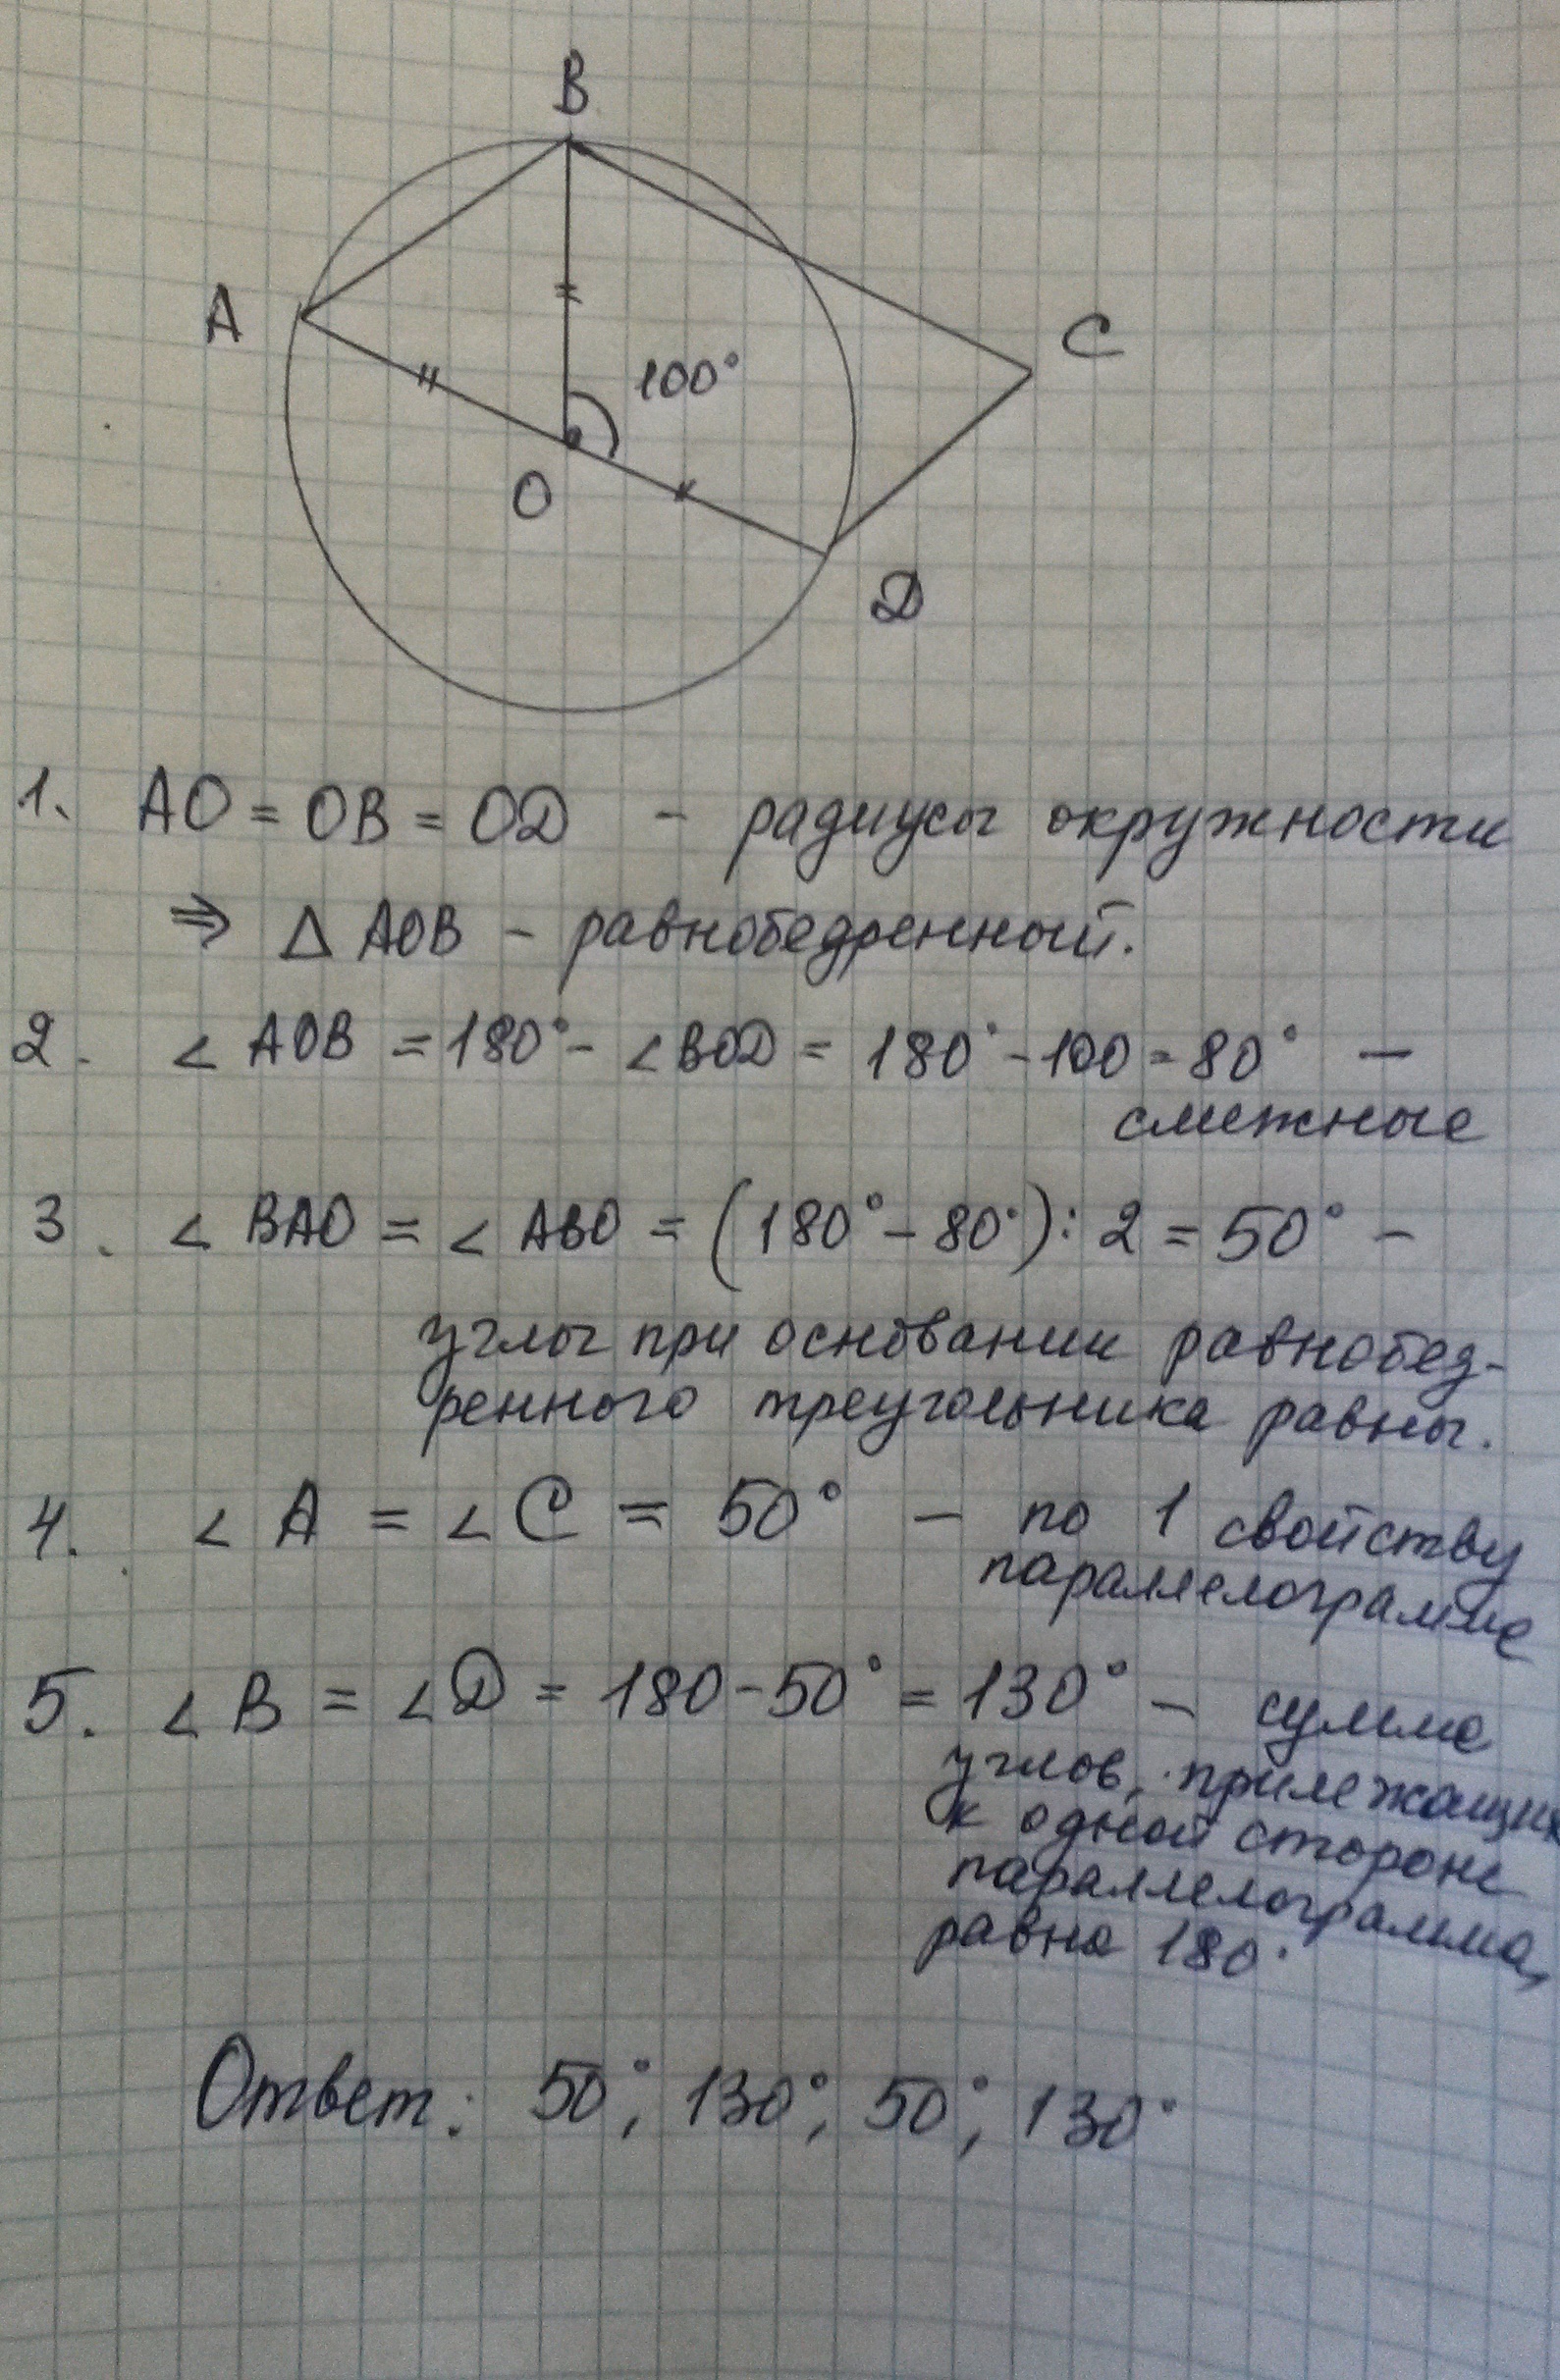 B
A
C
100°
O
D
1. AO = OB = OD - радиусы окружности
⇒ △ AOB - равнобедренный.
2. ∠ AOB = 180° - ∠BOD = 180° - 100 = 80° —
смежные
3. ∠ BAO = ∠ ABO = (180° - 80°) : 2 = 50° -
углы при основании равнобед-
ренного треугольника равны.
4. ∠ A = ∠ C = 50° - по 1 свойству
параллелограмма
5. ∠ B = ∠D = 180 - 50° = 130° - сумма
углов, прилежащих
к одной стороне
параллелограмма,
равна 180°
Ответ: 50°, 130°, 50°, 130°